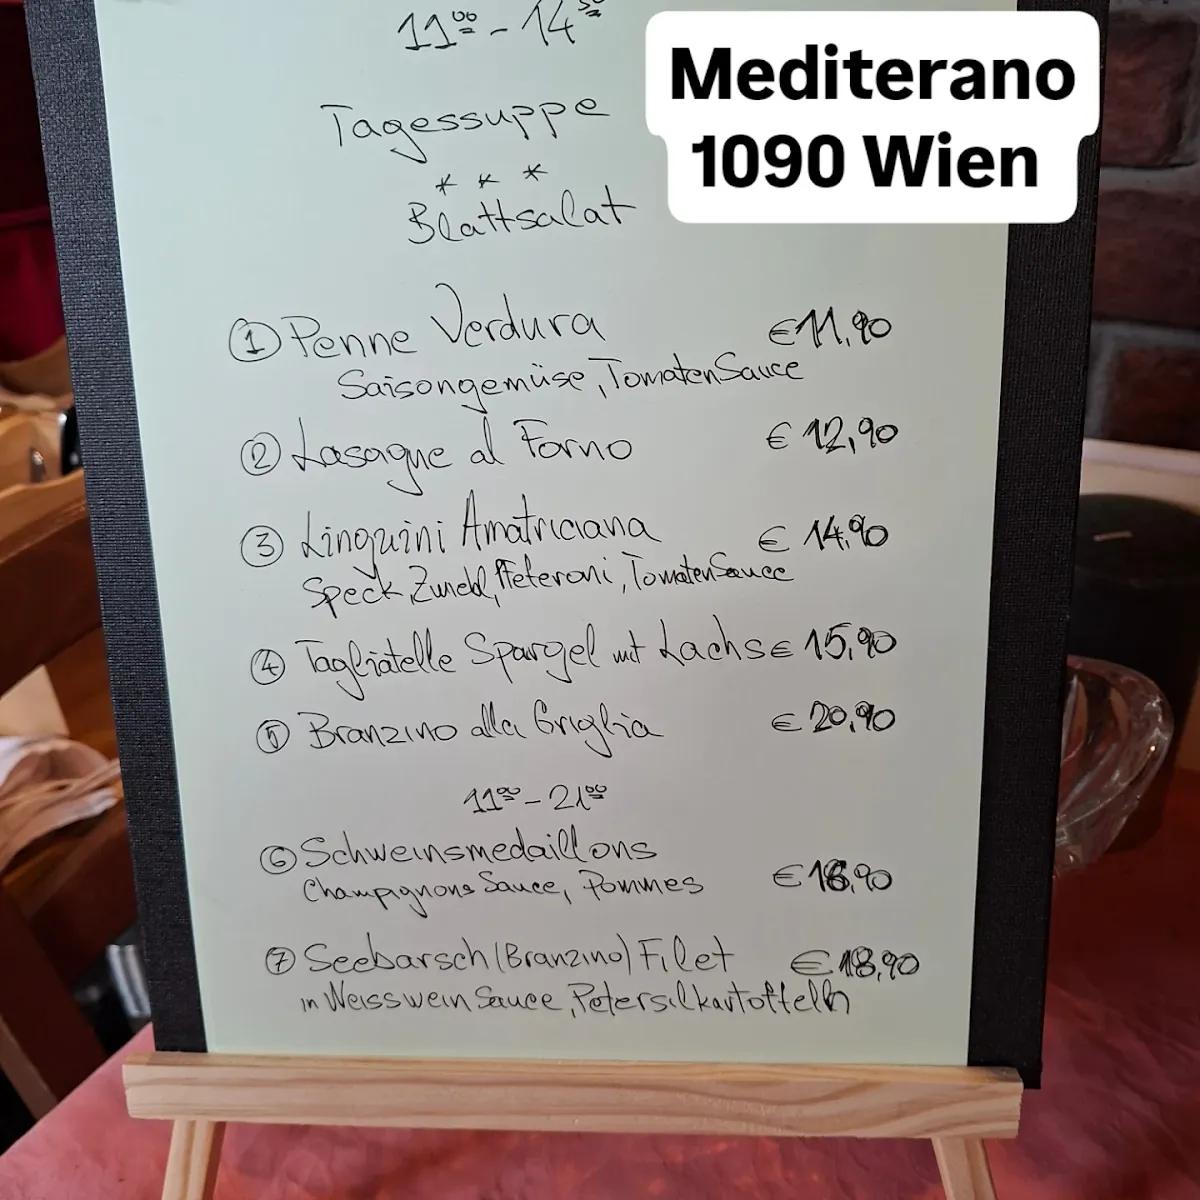 11⁰⁰ - 14³⁰
Mediterano
1090 Wien
Tagessuppe
* * *
Blattsalat
① Penne Verdura €11,90
Saisongemüse, TomatenSauce
② Lasagne al Forno € 12,90
③ Linguini Amatriciana € 14,90
Speck, Zwiebl, Pfeteroni, TomatenSauce
④ Tagliatelle Spargel mit Lachs € 15,90
⑤ Branzino alla Griglia € 20,90
11⁰⁰ - 21⁰⁰
⑥ Schweinsmedaillons
Champignons Sauce, Pommes €18,90
⑦ Seebarsch (Branzino) Filet € 18,90
in Weisswein Sauce, Petersilkartoffeln